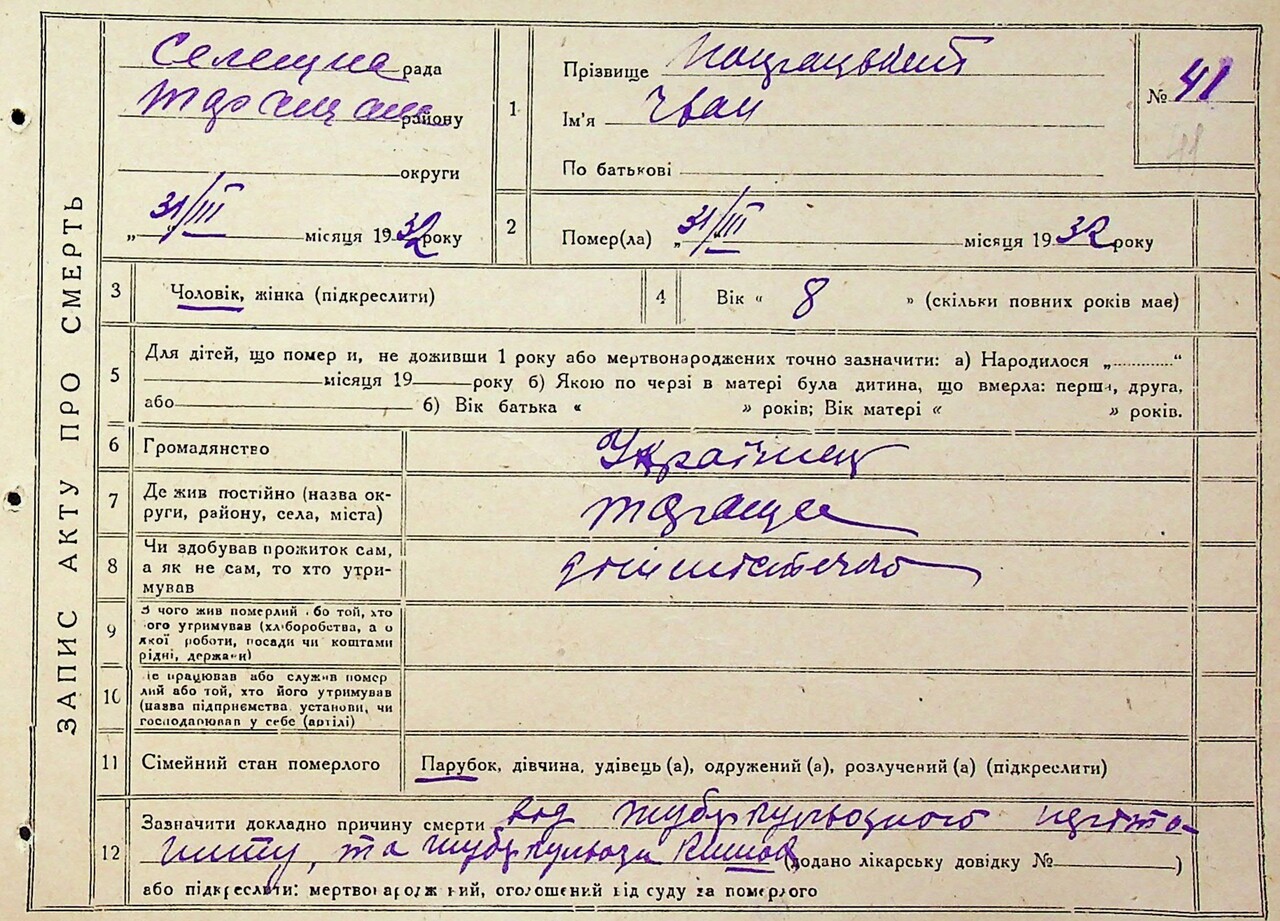 ЗАПИС АКТУ ПРО СМЕРТЬ
Селещна рада
району
округи
„ 31/III місяця 1932 року
1
Прізвище
Ім'я Іван
По батькові
№ 41
41
2
Помер(ла) „ 31/III місяця 1932 року
3 Чоловік, жінка (підкреслити)
4 Вік “ 8 ” (скільки повних років має)
5 Для дітей, що помер и, не доживши 1 року або мертвонароджених точно зазначити: а) Народилося „..........“
місяця 19 року б) Якою по черзі в матері була дитина, що вмерла: перша, друга,
або б) Вік батька “ ” років; Вік матері “ ” років.
6 Громадянство Українец
7 Де жив постійно (назва ок-
руги, району, села, міста)
Тараща
8 Чи здобував прожиток сам,
а як не сам, то хто утри-
мував
9 З чого жив померлий або той, хто
ого утримував (хліборобства, а о
якої роботи, посади чи коштами
рідні, держави)
10 Де працював або служив помер
лий або той, хто його утримував
(назва підприємства установи, чи
господарював у себе (артілі)
11 Сімейний стан померлого Парубок, дівчина, удівець (а), одружений (а), розлучений (а) (підкреслити)
12 Зазначити докладно причину смерти від туберкульозного періто-
ниту, та туберкульоза Кишок (додано лікарську довідку № )
або підкреслити: мертвонароджений, оголошений від суду за померлого